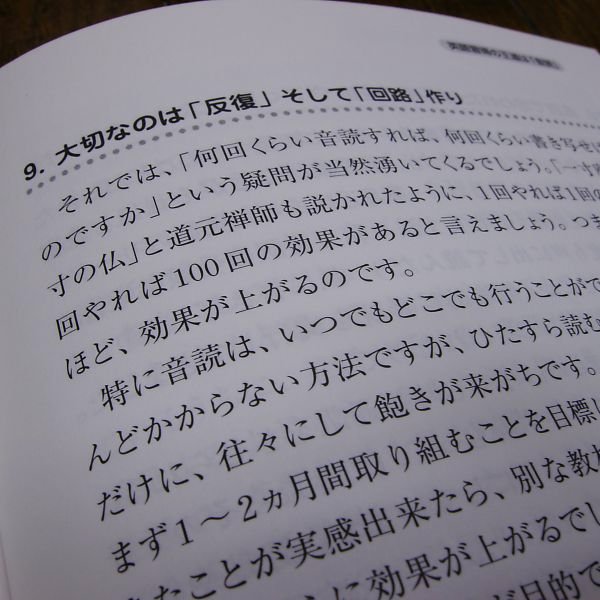 9. 大切なのは「反復」そして「回路」作り
それでは、「何回くらい音読すれば、何回くらい書き写せば
のですか」という疑問が当然湧いてくるでしょう。「一寸
寸の仏」と道元禅師も説かれたように、1回やれば1回の
回やれば100回の効果があると言えましょう。つま
ほど、効果が上がるのです。
特に音読は、いつでもどこでも行うことがで
んどかからない方法ですが、ひたすら読む
だけに、往々にして飽きが来がちです。
まず1～2ヵ月間取り組むことを目標
たことが実感出来たら、別な教
に効果が上がるでし
が目的で